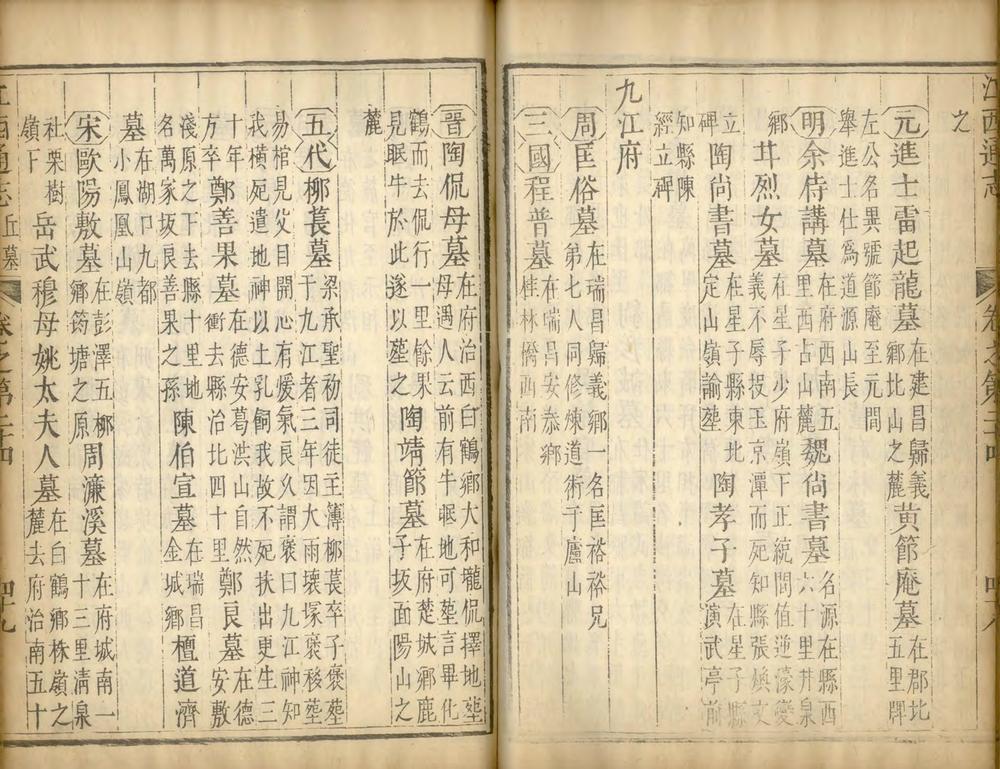 江西通志 卷之第三十四
之
元進士雷起龍墓 在建昌歸義鄉北山之麓 黃節庵墓 在郡北五里牌
左公名異號節庵至元間舉進士仕爲道源山長
明余侍講墓 在府西南五里西古山麓 魏尙書墓 名源在縣西六十里井泉
鄉 廾烈女墓 在星子少府嶺下正統間值逆濠變義不辱投玉京潭而死知縣張煥文
立碑 陶尙書墓 在星子縣東北定山嶺諭塟 陶孝子墓 在星子縣演武亭前
知縣陳經立碑
九江府
周匡俗墓 在瑞昌歸義鄉一名匡裕裕兄弟七人同修煉道術于廬山
三國程普墓 在瑞昌安泰鄉桂林橋西南
晉陶侃母墓 在府治西白鶴鄉大和壠侃擇地塟母遇人云前有牛眠地可墓言畢化
鶴而去侃行一里餘果見眠牛於此遂以塟之 陶靖節墓 在府楚城鄉鹿子坂面陽山之
麓
五代柳萇墓 梁承聖初司徒主簿柳萇卒子褒塟于九江者三年因大雨壞塚褒移塟
易棺見父目開心有煖氣良久謂褒曰九江神知我橫死遣地神以土乳飼我故不死扶出更生三
十年方卒 鄭善果墓 在德安葛洪山自然衝去縣治比四十里 鄭良墓 在德安敷
淺原之下去縣十里地名萬家坂良善果之孫 陳伯宣墓 在瑞昌金城鄉 檀道濟
墓 在湖口九都小鳳凰山嶺
宋歐陽敷墓 在彭澤五柳鄉筠塘之原 周濂溪墓 在府城南一十三里淸泉
社栗樹嶺下 岳武穆母姚太夫人墓 在白鶴鄉株嶺之麓去府治南五十
江西通志 丘墓 卷之第三十四 四十九